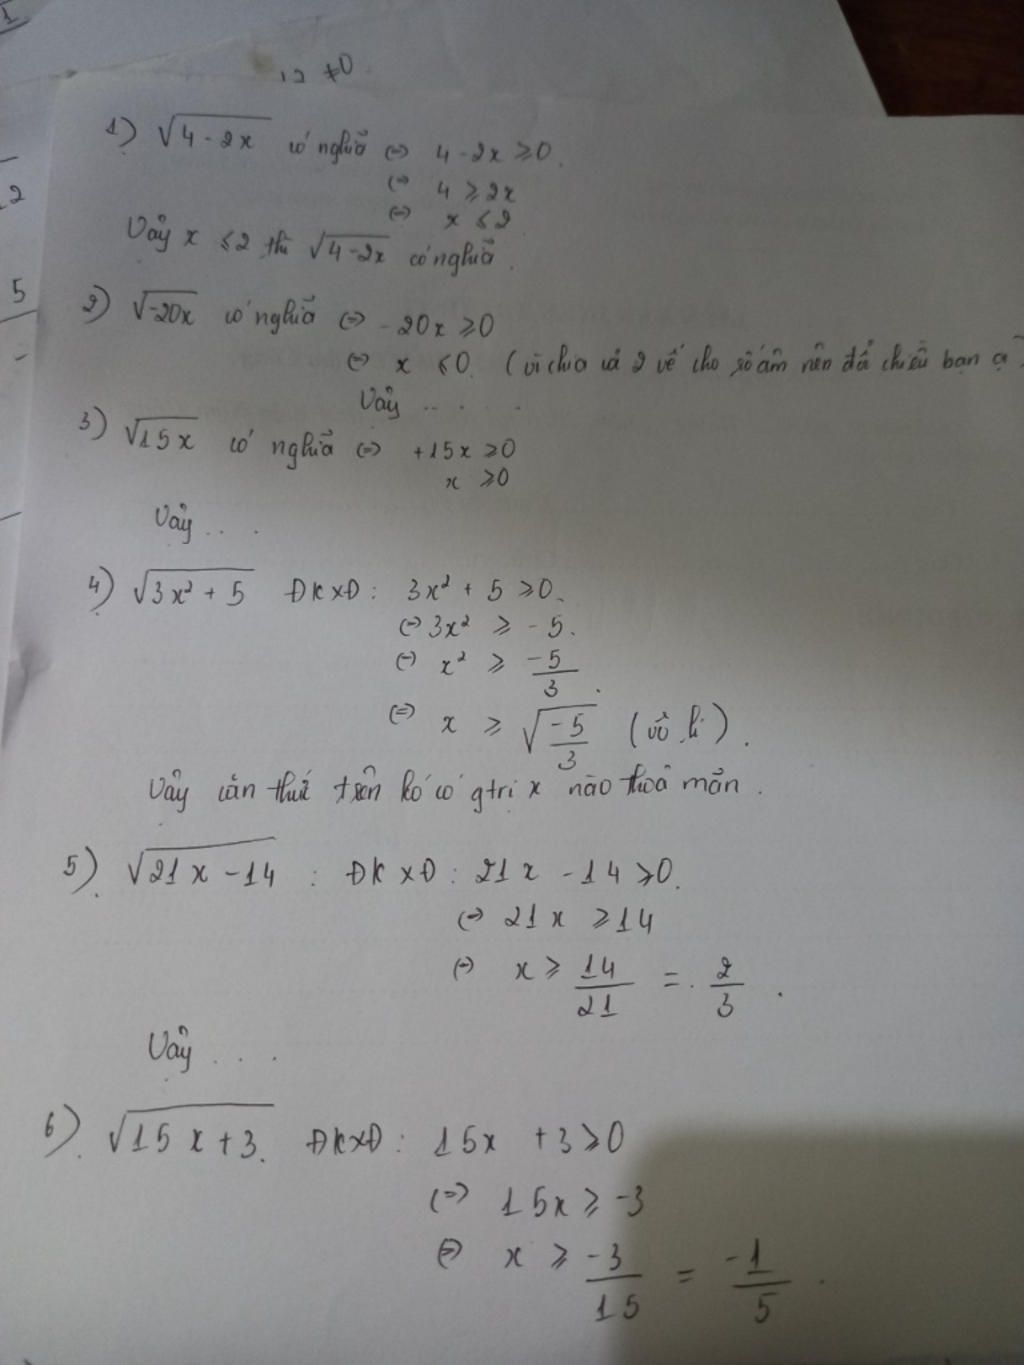 1) √(4-2x) có nghĩa (=) 4-2x ⩾0.
(=) 4 ⩾ 2x
(=) x ⩽2
Vậy x ⩽2 thì √(4-2x) có nghĩa.
2) √(-20x) có nghĩa (=) -20x ⩾0
(=) x ⩽0. (vì chia cả 2 vế cho số âm nên đổi chiều bạn ạ)
Vậy ....
3) √(15x) có nghĩa (=) +15x ⩾0
x ⩾0
Vậy ...
4) √(3x² + 5) ĐKXĐ: 3x² + 5 ⩾0.
(=) 3x² ⩾ -5.
(=) x² ⩾ -5/3.
(=) x ⩾ √(-5/3) (vô lí).
Vậy căn thức trên kó có gtrị x nào thoả mãn.
5) √(21x -14) : ĐKXĐ: 21x -14 ⩾0.
(=) 21x ⩾14
(=) x ⩾ 14/21 = 2/3.
Vậy ...
6) √(15x+3). ĐKXĐ: 15x +3 ⩾0
(=) 15x ⩾ -3
(=) x ⩾ -3/15 = -1/5.